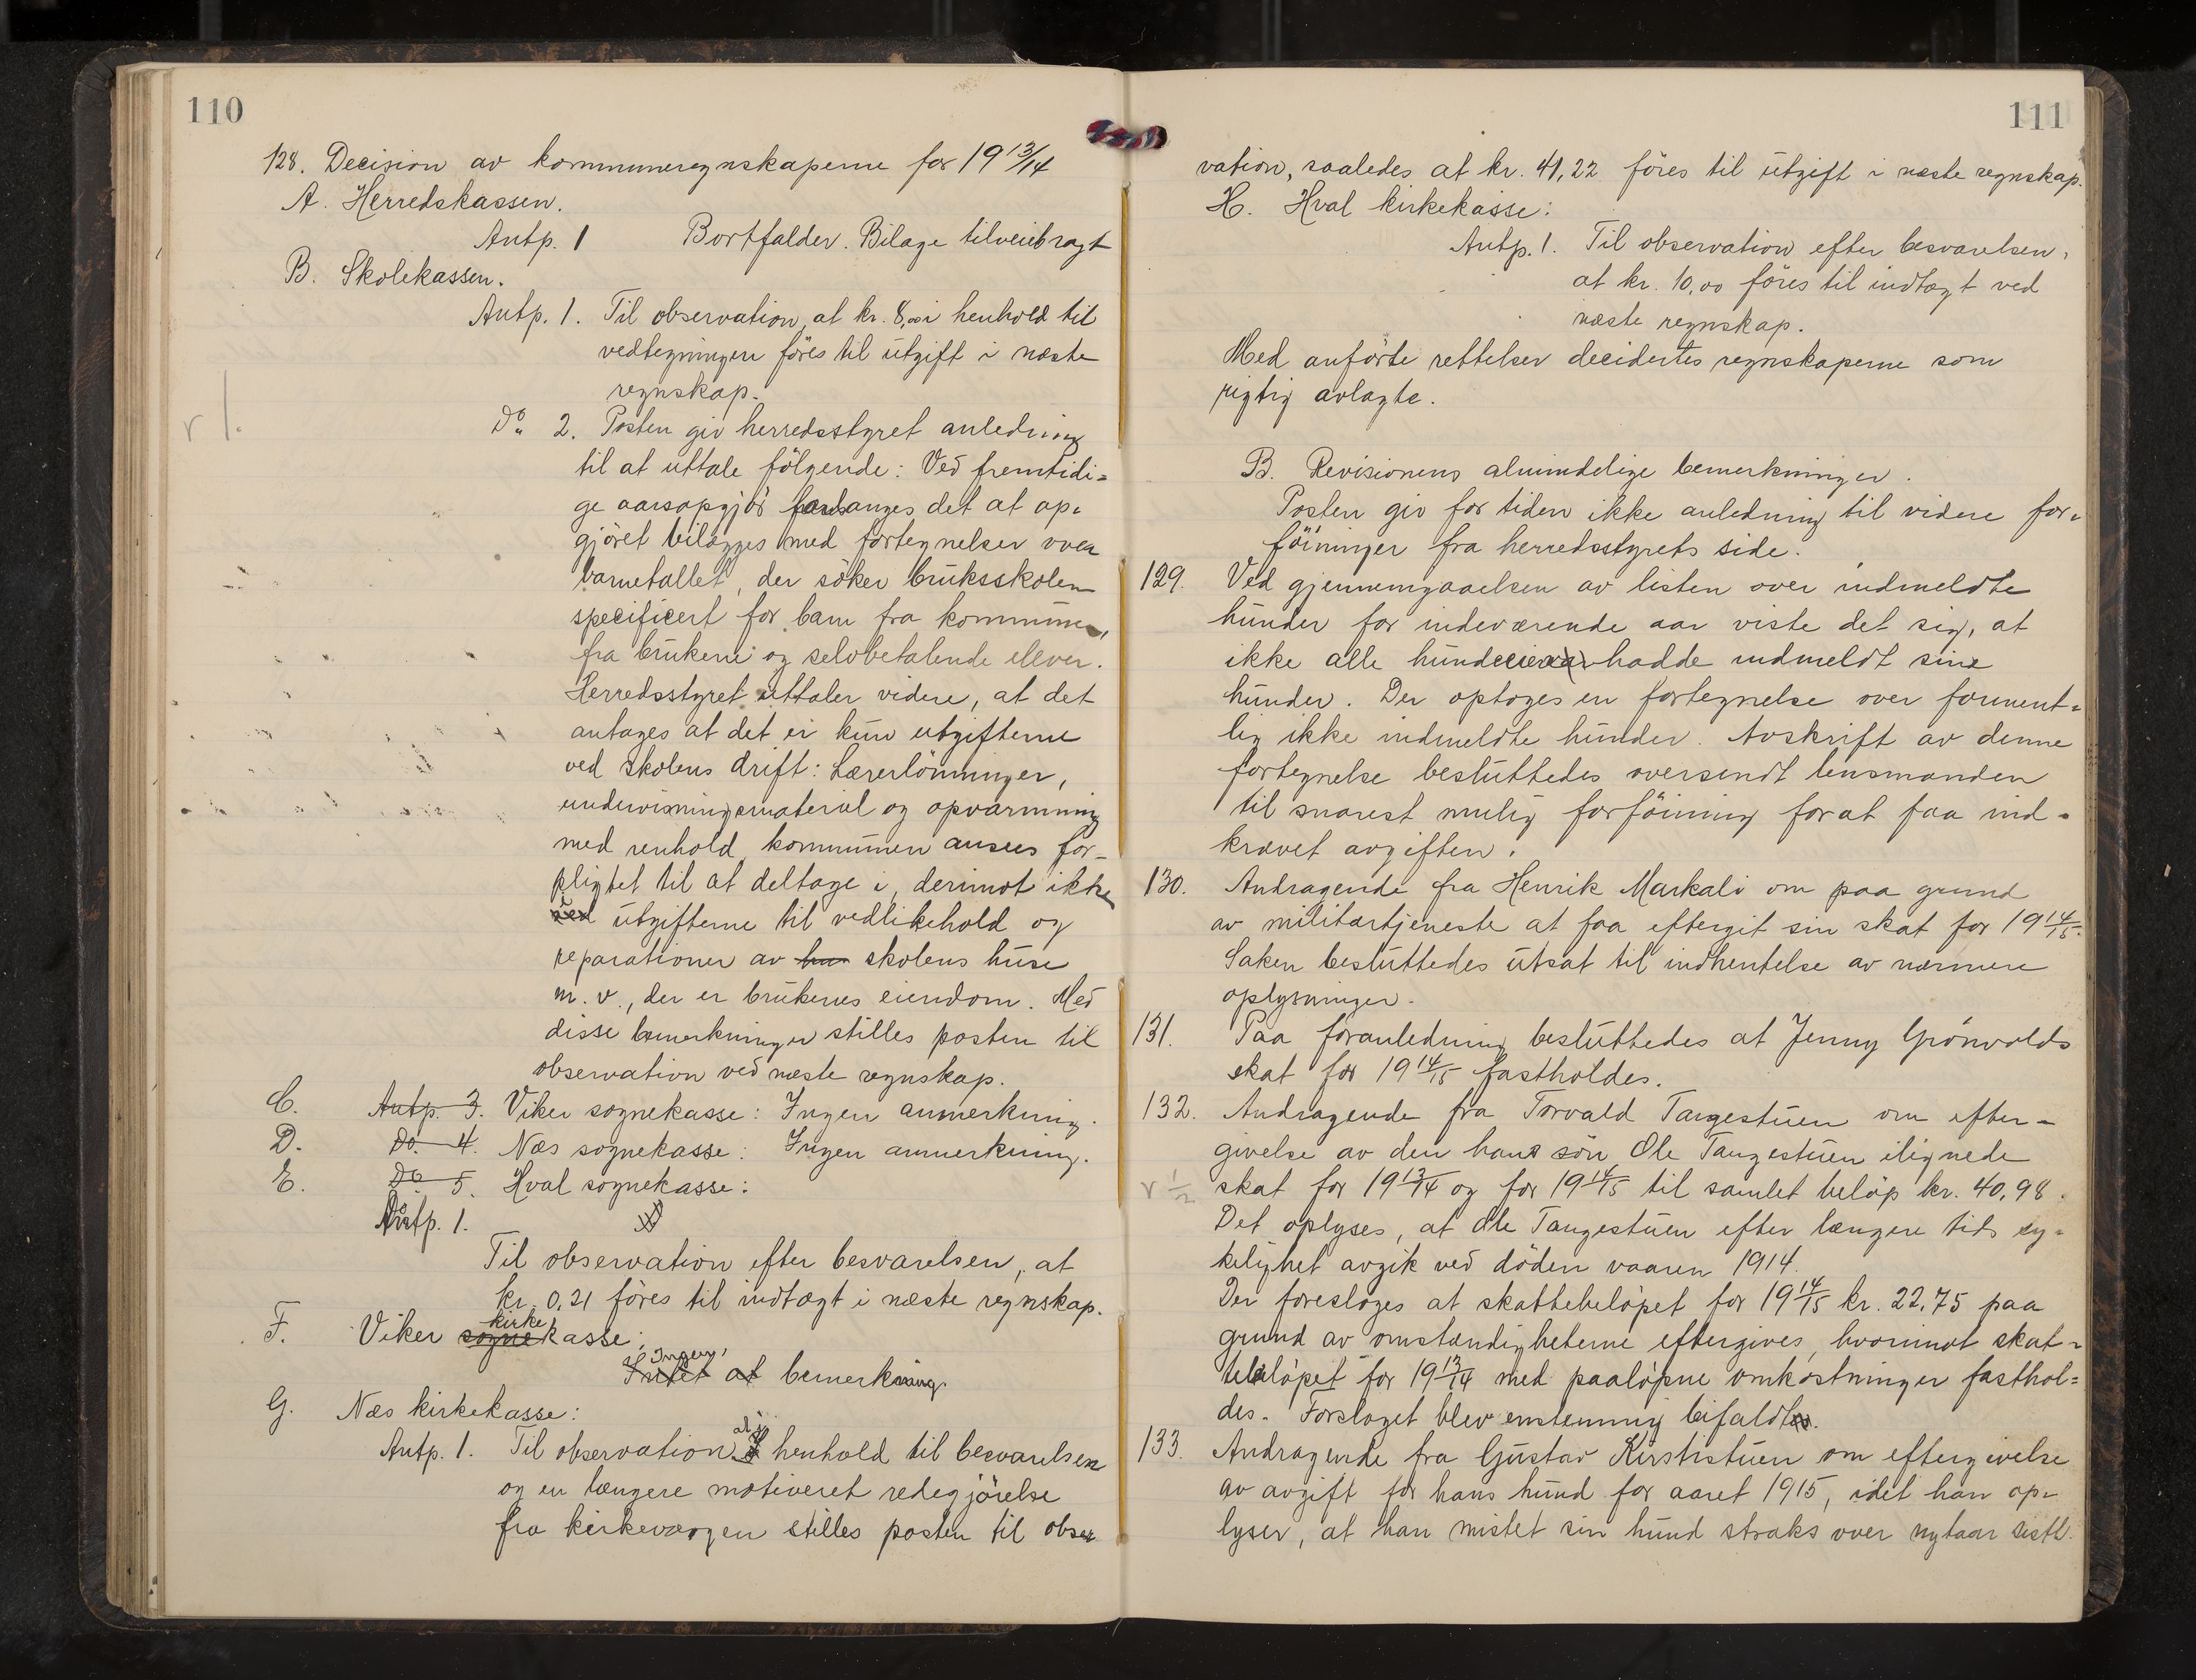 110
128. Decision av kommuneregnskaperne for 19 13/14
A. Herredskassen.
Antp. 1 Bortfalder. Bilage tilveiebragt
B. Skolekassen.
Antp. 1. Til observation, at kr. 8,00 i henhold til
vedtegningen föres til utgift i næste
regnskap.
r 1.
Do. 2. Posten gir herredsstyret anledning
til at uttale fölgende: Ved fremtidi=
ge aarsopgjör forlanges det at op=
gjöret bilægges med fortegnelser over
barnetallet, der söker bruksskolen
specificert for barn fra kommunen,
fra brukene og selvbetalende elever.
Herredsstyret uttaler videre, at det
antages at det er kun utgifterne
ved skolens drift: Lærerlönninger,
undervisningsmateriel og opvarmning
med renhold, kommunen ansees for-
pligtet til at deltage i, derimot ikke
i utgifterne til vedlikehold og
reparationer av hu skolens huse
m. v., der er brukenes eiendom. Med
disse bemerkninger stilles posten til
observation ved næste regnskap.
C. Antp. 3. Viker sognekasse: Ingen anmerkning.
D. Do. 4. Næs sognekasse: Ingen anmerkning.
E. Do 5. Hval sognekasse:
Antp. 1.
Til observation efter besvarelsen, at
kr. 0,21 föres til indtægt i næste regnskap.
kirke
F. Viker sognekasse:
Ingen
Intet at bemerkning
G. Næs kirkekasse:
Antp. 1. Til observation. I henhold til besvarelsen
og en længere motiveret redegjörelse
fra kirkeværgen stilles posten til obser
111
vation, saaledes at kr. 41,22 föres til utgift i næste regnskap.
H. Hval kirkekasse:
Antp. 1. Til observation efter besvarelsen,
at kr. 10,00 föres til indtægt ved
næste regnskap.
Med anförte rettelser decidertes regnskaperne som
rigtig avlagte.
B. Revisionens almindelige bemerkninger.
Posten gir for tiden ikke anledning til videre for=
föininger fra herredsstyrets side.
129. Ved gjennemgaaelsen av listen over indmeldte
hunder for indeværende aar viste det sig, at
ikke alle hundeeiere hadde indmeldt sine
hunder. Der optoges en fortegnelse over forment=
lig ikke indmeldte hunder. Avskrift av denne
fortegnelse besluttedes oversendt lensmanden
til snarest mulig forföining forat faa ind=
krævet avgiften.
130. Andragende fra Henrik Markali om paa grund
av militærtjeneste at faa eftergit sin skat for 19 14/15.
Saken besluttedes utsat til indhentelse av nærmere
oplysninger.
131. Paa foranledning besluttedes at Jenny Grönvolds
skat for 19 14/15 fastholdes.
132. Andragende fra Torvald Tangestuen om efter-
givelse av den hans sön Ole Tangestuen ilignede
r 1/2 skat for 19 13/14 og for 19 14/15 til samlet belöp kr. 40,98.
Det oplyses, at Ole Tangestuen efter længere tids sy=
kelighet avgik ved döden vaaren 1914.
Der foresloges at skattebelöpet for 19 14/15 kr. 22,75 paa
grund av omstændigheterne eftergives, hvorimot skat=
tebelöpet for 19 13/14 med paalöpne omkostninger fasthol=
des. Forslaget blev enstemmig bifaldt.
133. Andragende fra Gustav Kirstistuen om eftergivelse
av avgift for hans hund for aaret 1915, idet han op=
lyser, at han mistet sin hund straks over nytaar sistl.